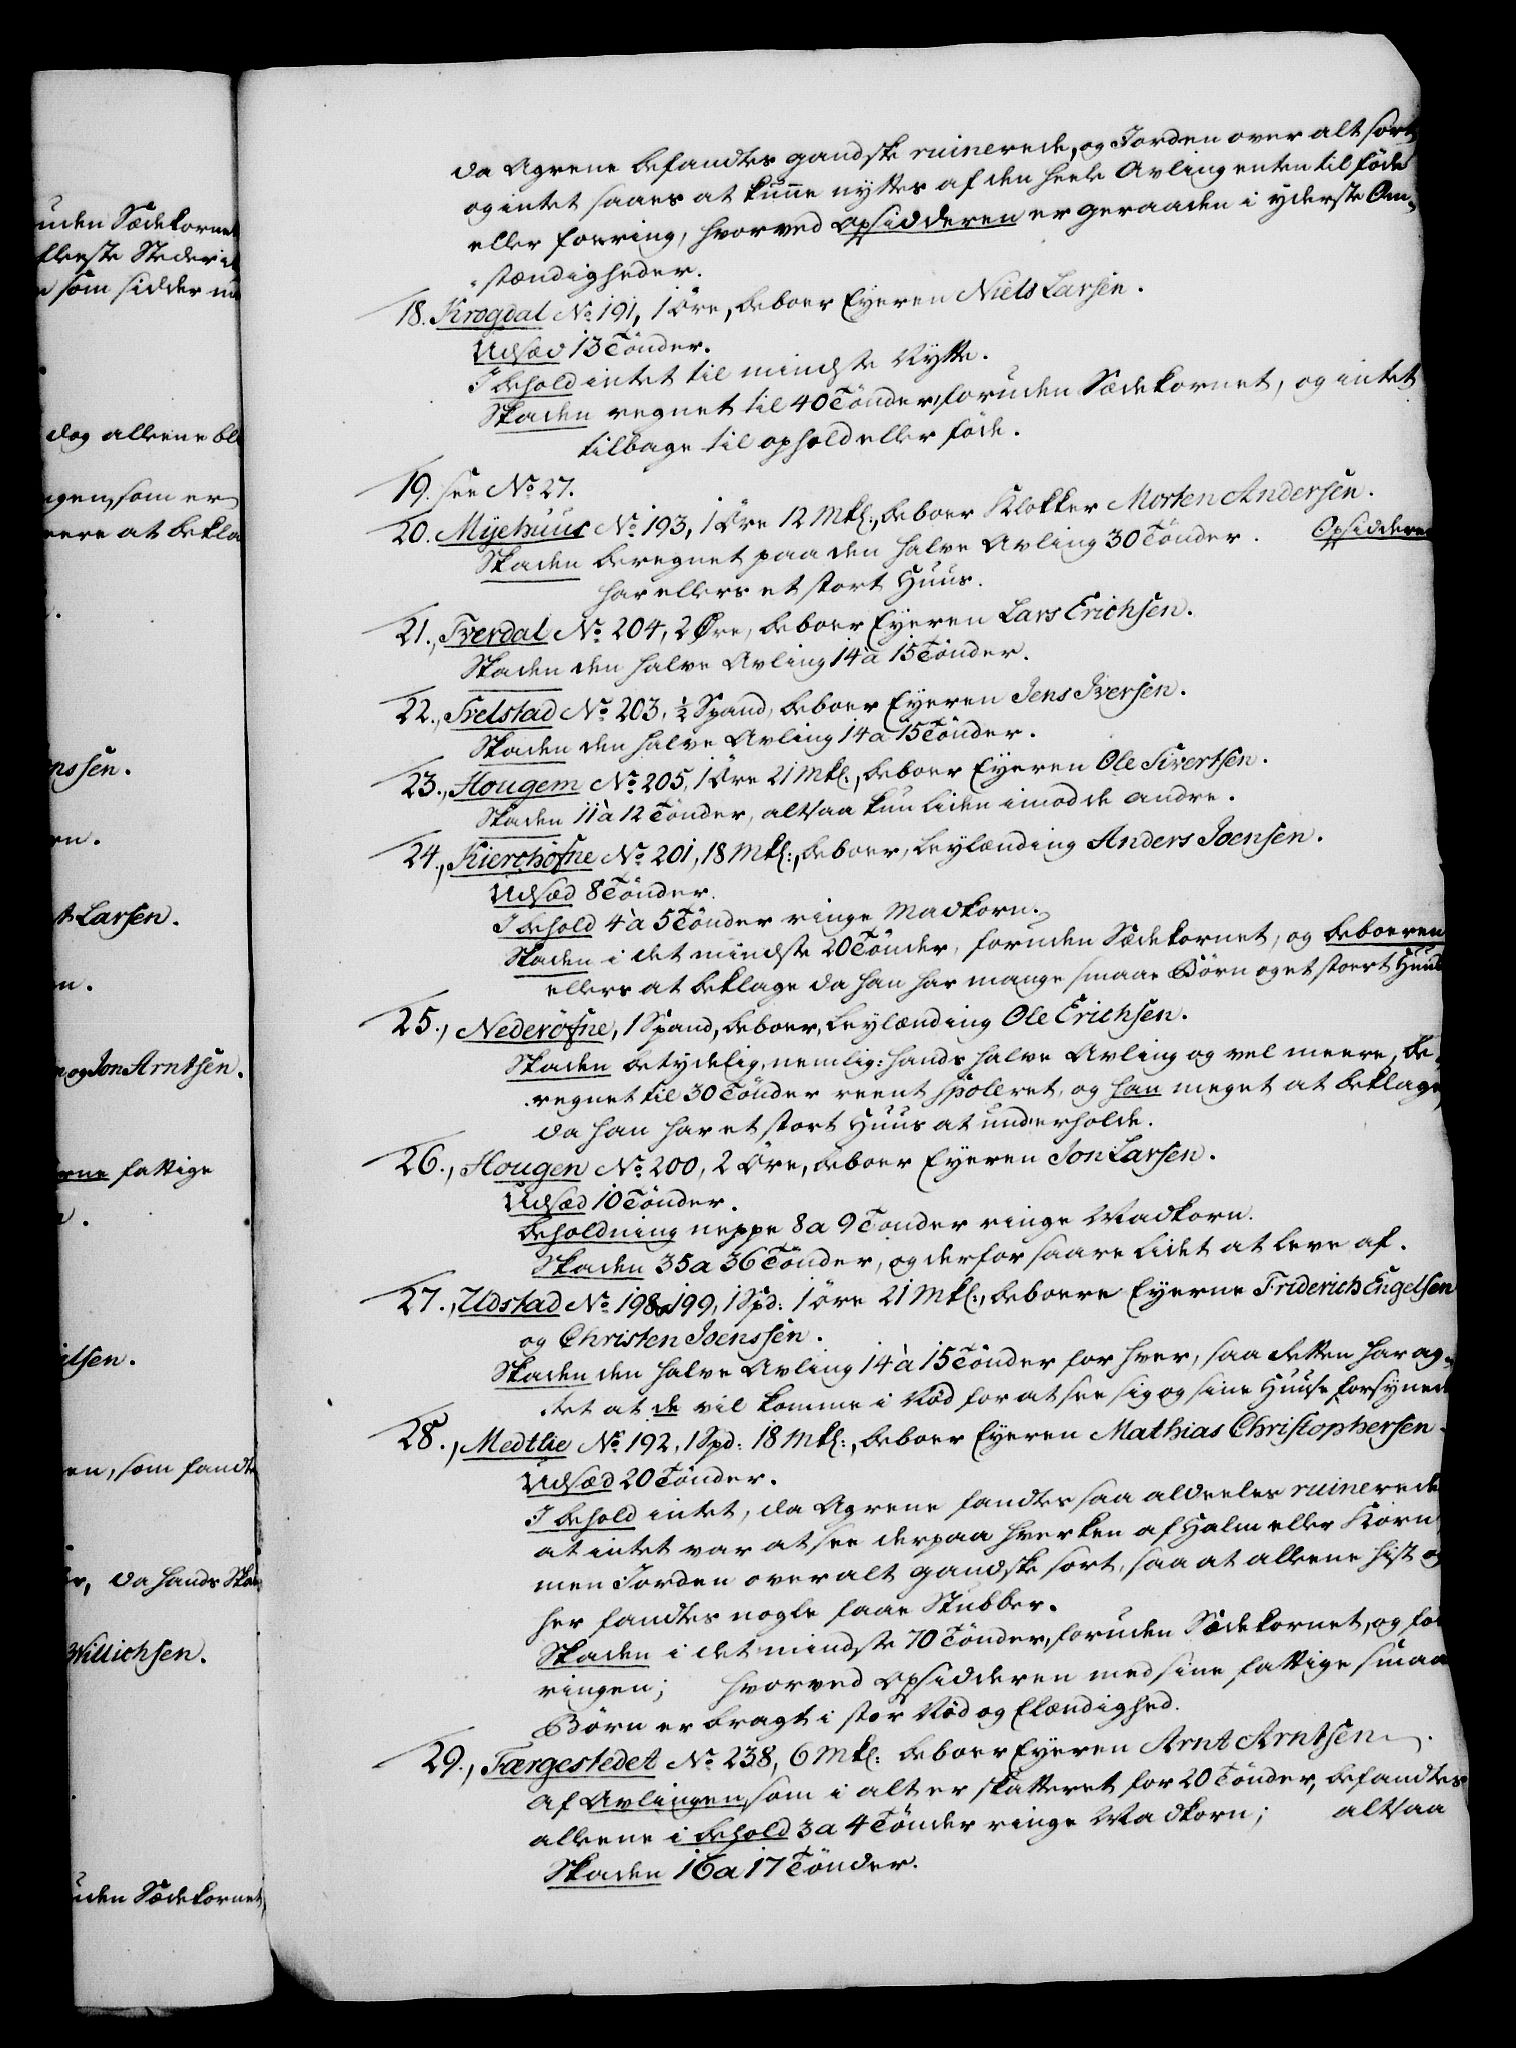 uden Sædekornet
fleeste Steder i
som sidder
dog alleene
ngen, som er
eere at bekla
nssen.
en.
t Larsen.
en.
og Jon Arntsen.
erne fattige
tsen.
en, som fandt
da hands Skade
Willichsen.
uden Sædekornet,
da Agrene befandtes gandske ruinerede, og Jorden over alt sort
og intet saaes at kunne nyttes af den heele Avling enten til føde
eller foering, hvorved Opsidderen er geraaden i yderste Om-
stændigheder.
18. Krogdal No 191, 1 Øre, beboer Eyeren Niels Larsen.
Udsæd 13 Tönder.
I behold intet til mindste Nytte.
Skaden regnet til 40 Tönder, foruden Sædekornet, og intet
tilbage til ophold eller föde.
19. see No 27.
20. Myehuus No 193, 1 Øre 12 Mkl:, beboer Klokker Morten Andersen.
Skaden beregnet paa den halve Avling 30 Tönder. Opsidderen
har ellers et stort Huus.
21., Tverdal No 204, 2 Øre, beboer Eyeren Lars Erichsen.
Skaden den halve Avling 14 à 15 Tönder.
22., Trelstad No 203, ½ Spand, beboer Eyeren Jens Iversen.
Skaden den halve Avling 14 a 15 Tönder.
23., Hougem No 205, 1 Øre 21 Mkl:, beboer Eyeren Ole Sivertsen.
Skaden 11 à 12 Tönder, altsaa kun liden imod de andre.
24., Kierchöfne No 201, 18 Mkl:, beboer, Leylænding Anders Joensen.
Udsæd 8 Tönder.
I behold 4 à 5 Tönder ringe Madkorn.
Skaden i det mindste 20 Tönder, foruden Sædekornet, og beboeren
ellers at beklage da han har mange smaae Börn og et stoert Huus
25., Nederöfne, 1 Spand, beboer, Leylænding Ole Erichsen.
Skaden betydelig, nemlig: hands halve Avling og vel meere, be-
regnet til 30 Tönder reent spoleret, og han meget at beklage,
da han har et stort Huus at underholde.
26., Hougen No 200, 2 Øre, beboer Eyeren Jon Larsen.
Udsæd 10 Tönder.
Beholdning neppe 8 a 9 Tonder ringe Madkorn.
Skaden 35 a 36 Tönder, og derfor saare lidet at leve af.
27., Udstad No 198 a 199, 1 Spd: 1 øre 21 Mkl:, beboere Eyerne Friderich Engelsen
og Christen Joenssen.
Skaden den halve Avling 14 à 15 Tönder for hver, saa detten har ag-
tet at de vil komme i Nød for at see sig og sine Huuse forsynede
28., Medtlie No 192, 1 Spd: 18 Mkl:, beboer Eyeren Mathias Christophersen.
Udsæd 20 Tönder.
I behold intet, da Agrene fandtes saa aldeeles ruinerede
at intet var at see derpaa hverken af Halm eller Korn
men Jorden over alt gandske sort, saa at alleene hist og
her fandtes nogle faae Stubber.
Skaden i det mindste 70 Tönder, foruden Sædekornet, og foe
ringen; hvorved Opsidderen med sine fattige smaa
Börn er bragt i stor Nød og Elændighed.
29., Færgestedet No 238, 6 Mkl: beboer Eyeren Arnt Arntsen.
Af Avlingen, som i alt er skatteret for 20 Tönder, befandtes
alleene i behold 3 a 4 Tönder ringe Madkorn; altsaa
Skaden 16 a 17 Tönder.